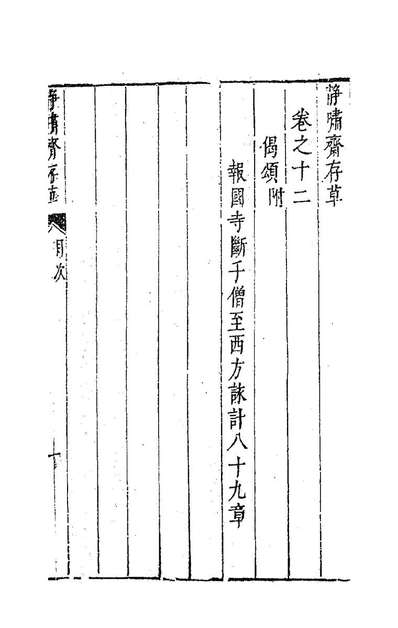 静嘯齋存草
卷之十二
偈頌附
報國寺斷手僧至西方詠計八十九章
静嘯齋存草
目次
十